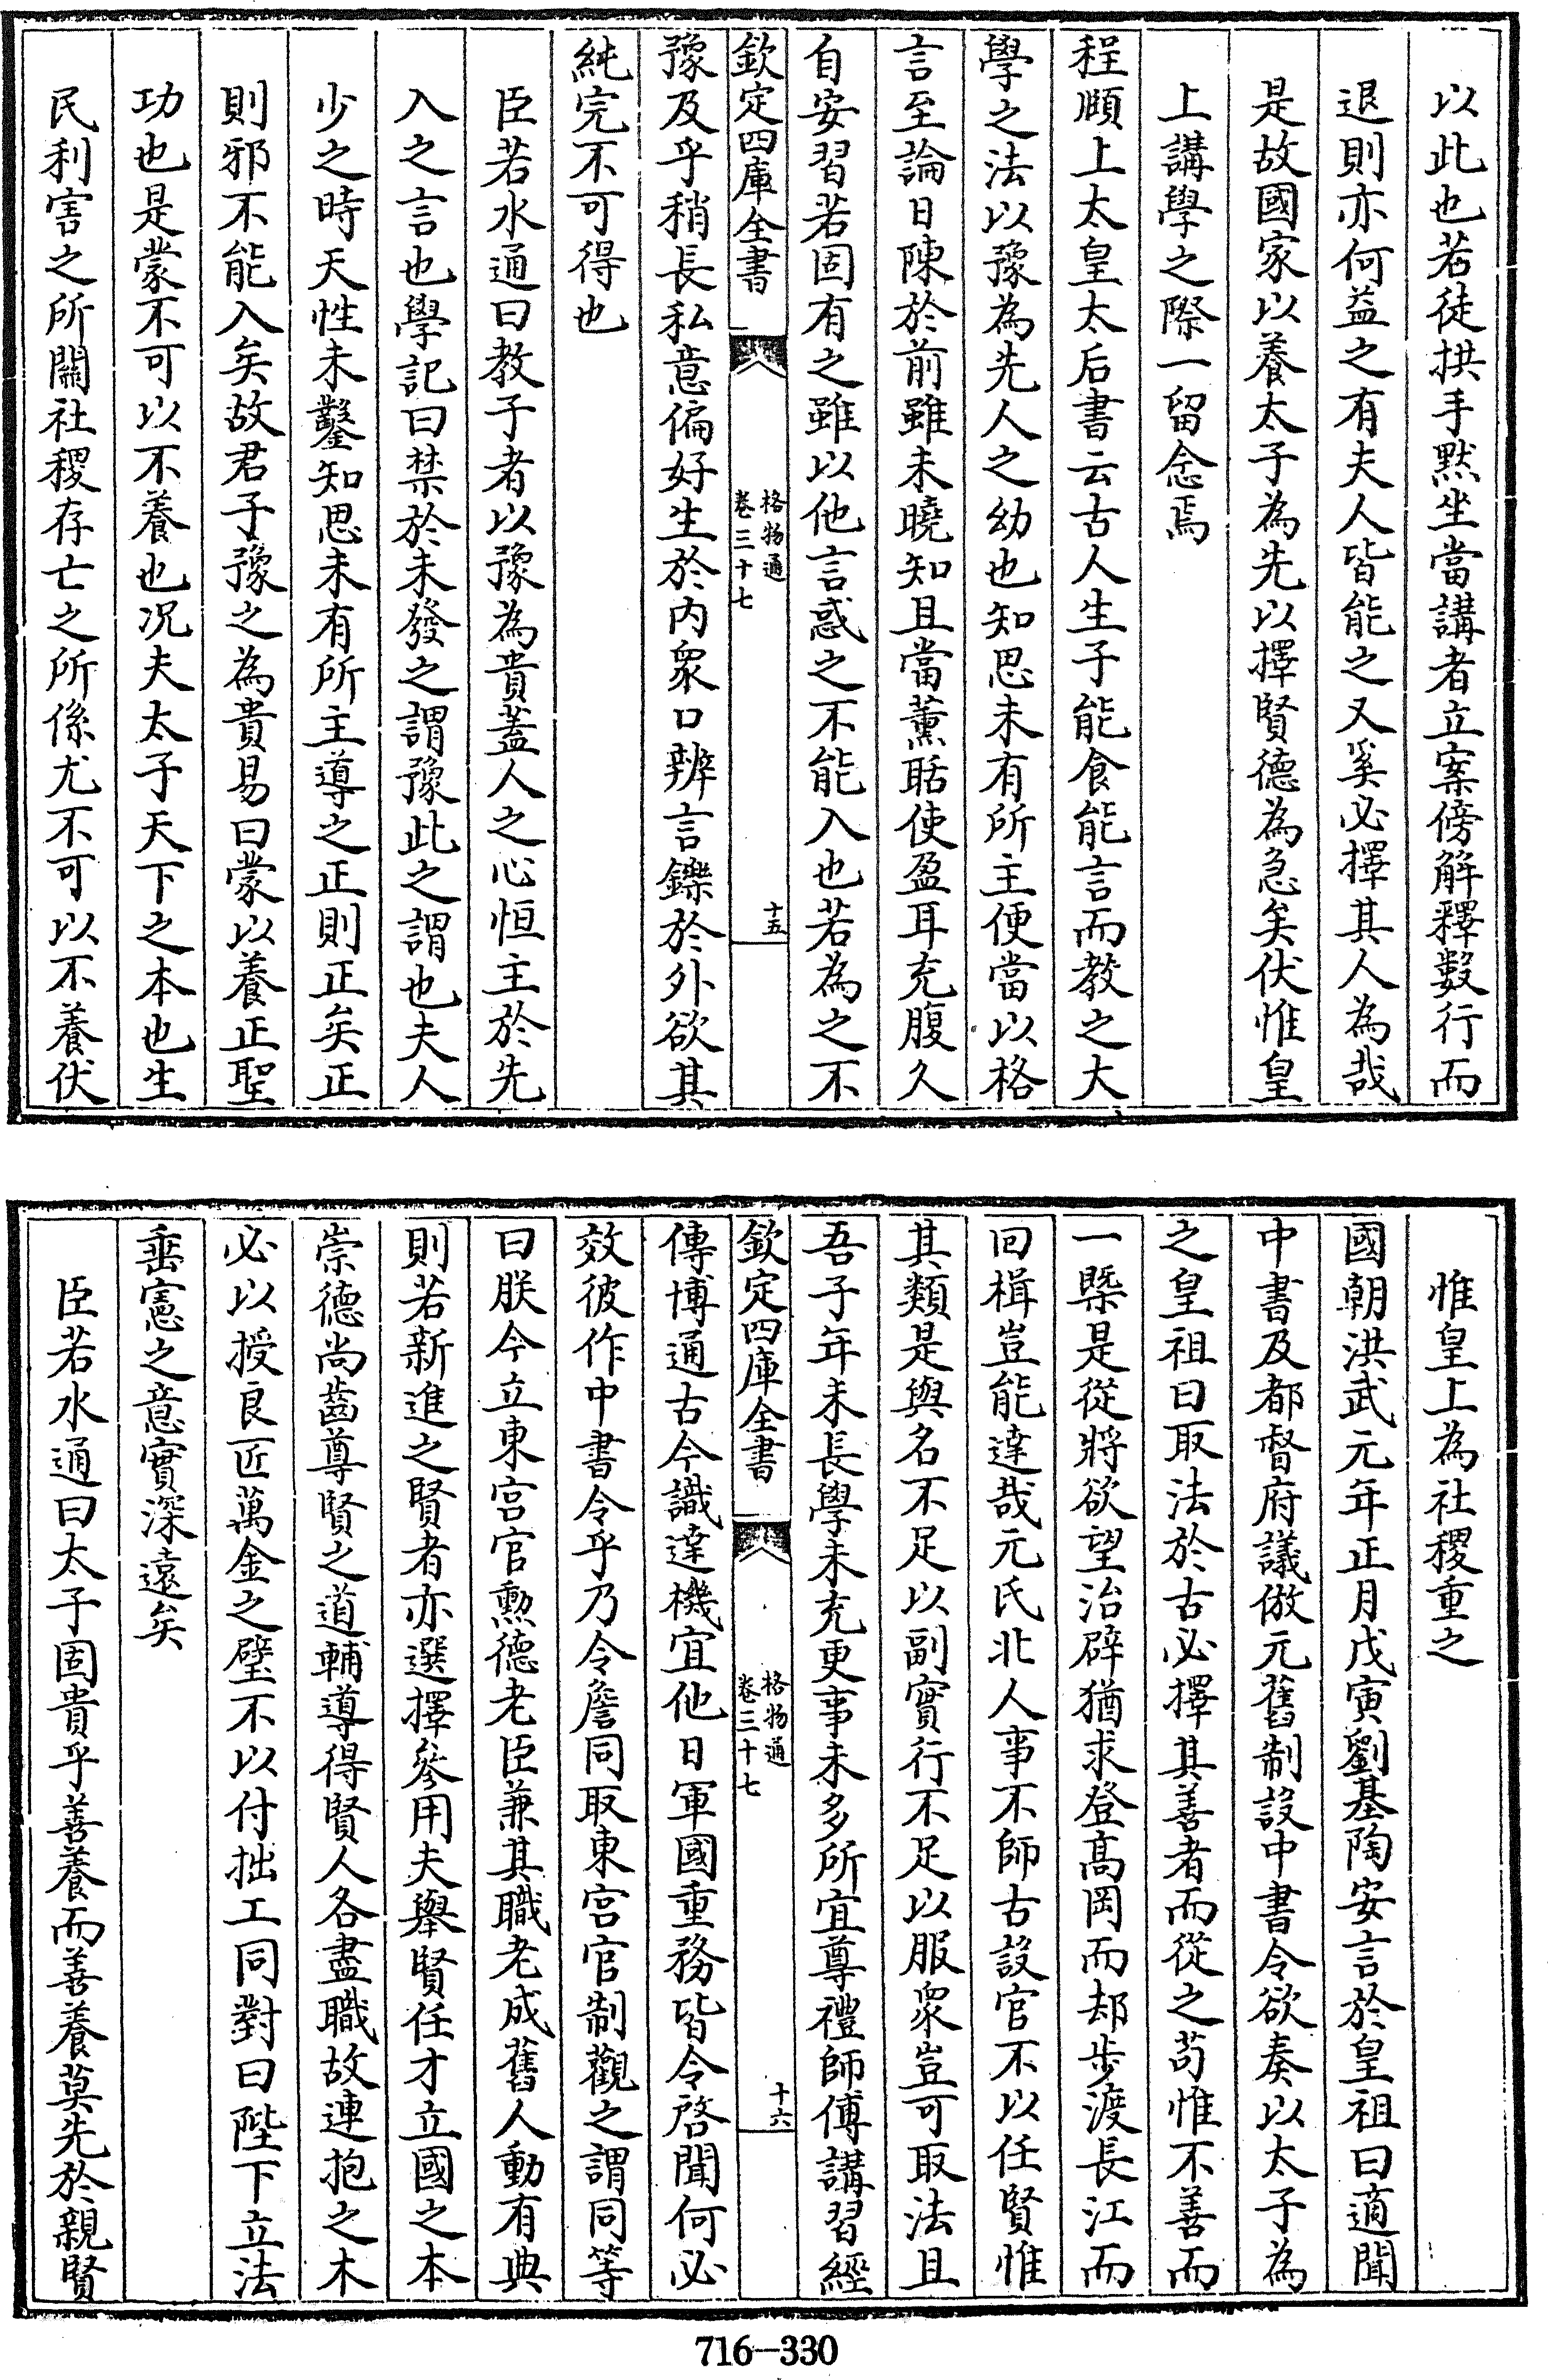 以此也若徒拱手黙坐當講者立案傍解釋數行而
退則亦何益之有夫人皆能之又奚必擇其人為哉
是故國家以養太子為先以擇賢德為急矣伏惟皇
上講學之際一留念焉
程頤上太皇太后書云古人生子能食能言而教之大
學之法以豫為先人之幼也知思未有所主便當以格
言至論日陳於前雖未曉知且當薰聒使盈耳充腹久
自安習若固有之雖以他言惑之不能入也若為之不
欽定四庫全書
格物通
卷三十七
十五
豫及乎稍長私意偏好生於内衆口辨言鑠於外欲其
純完不可得也
臣若水通曰教子者以豫為貴蓋人之心恒主於先
入之言也學記曰禁於未發之謂豫此之謂也夫人
少之時天性未鑿知思未有所主導之正則正矣正
則邪不能入矣故君子豫之為貴易曰蒙以養正聖
功也是蒙不可以不養也况夫太子天下之本也生
民利害之所關社稷存亡之所係尤不可以不養伏
惟皇上為社稷重之
國朝洪武元年正月戊寅劉基陶安言於皇祖曰適聞
中書及都督府議倣元舊制設中書令欲奏以太子為
之皇祖曰取法於古必擇其善者而從之苟惟不善而
一槩是從將欲望治辟猶求登髙岡而却步渡長江而
回楫豈能達哉元氏北人事不師古設官不以任賢惟
其類是與名不足以副實行不足以服衆豈可取法且
吾子年未長學未充更事未多所宜尊禮師傅講習經
欽定四庫全書
格物通
卷三十七
十六
傳博通古今識達機宜他日軍國重務皆令啓聞何必
效彼作中書令乎乃令詹同取東宫官制觀之謂同等
曰朕今立東宫官勲德老臣兼其職老成舊人動有典
則若新進之賢者亦選擇參用夫舉賢任才立國之本
崇德尚齒尊賢之道輔導得賢人各盡職故連抱之木
必以授良匠萬金之璧不以付拙工同對曰陛下立法
垂憲之意實深遠矣
臣若水通曰太子固貴乎善養而善養莫先於親賢
716-330